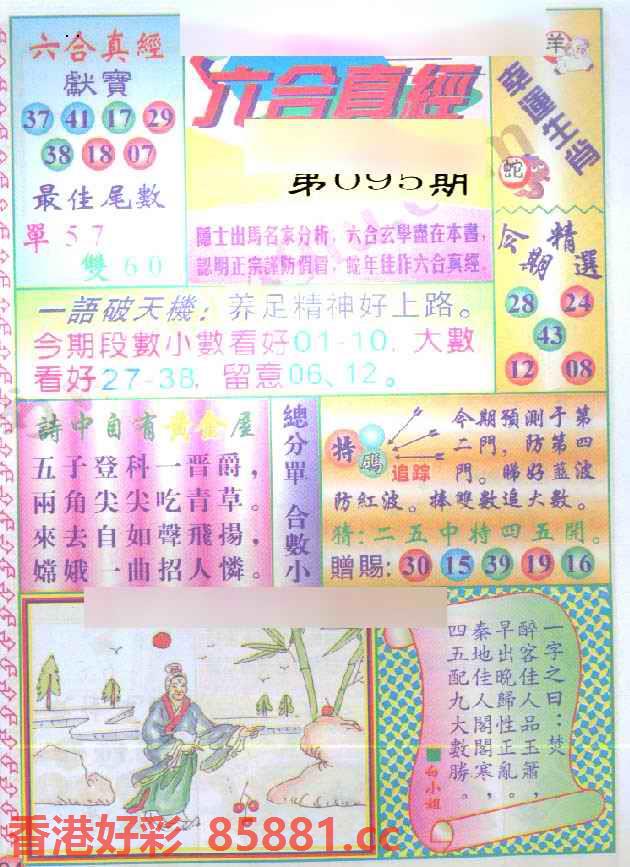 六合真經
獻寶
37 41 17 29
38 18 07
最佳尾數
單57
雙60
六合真經
第095期
隱士出馬名家分析，六合玄學盡在本書，
認明正宗謹防假冒，蛇年佳作六合真經。
羊
幸運生肖
蛇
今期精選
28 24
43
12 08
一語破天機：养足精神好上路。
今期段數小數看好01-10，大數
看好27-38，留意06、12。
詩中自有黄金屋
五子登科一晋爵，
兩角尖尖吃青草。
來去自如聲飛揚，
嫦娥一曲招人憐。
總分單 合數小
特碼
追踪
今期預測于第
二門，防第四
門。睇好藍波
防紅波。捧雙數追大數。
猜：二五中特四五開。
贈賜：30 15 39 19 16
一字之曰：焚
醉客佳人品玉簫，
早出晚歸性正亂。
秦地佳人閣閣寒，
四五配九大數勝。
白小姐
香港好彩 85881.cc